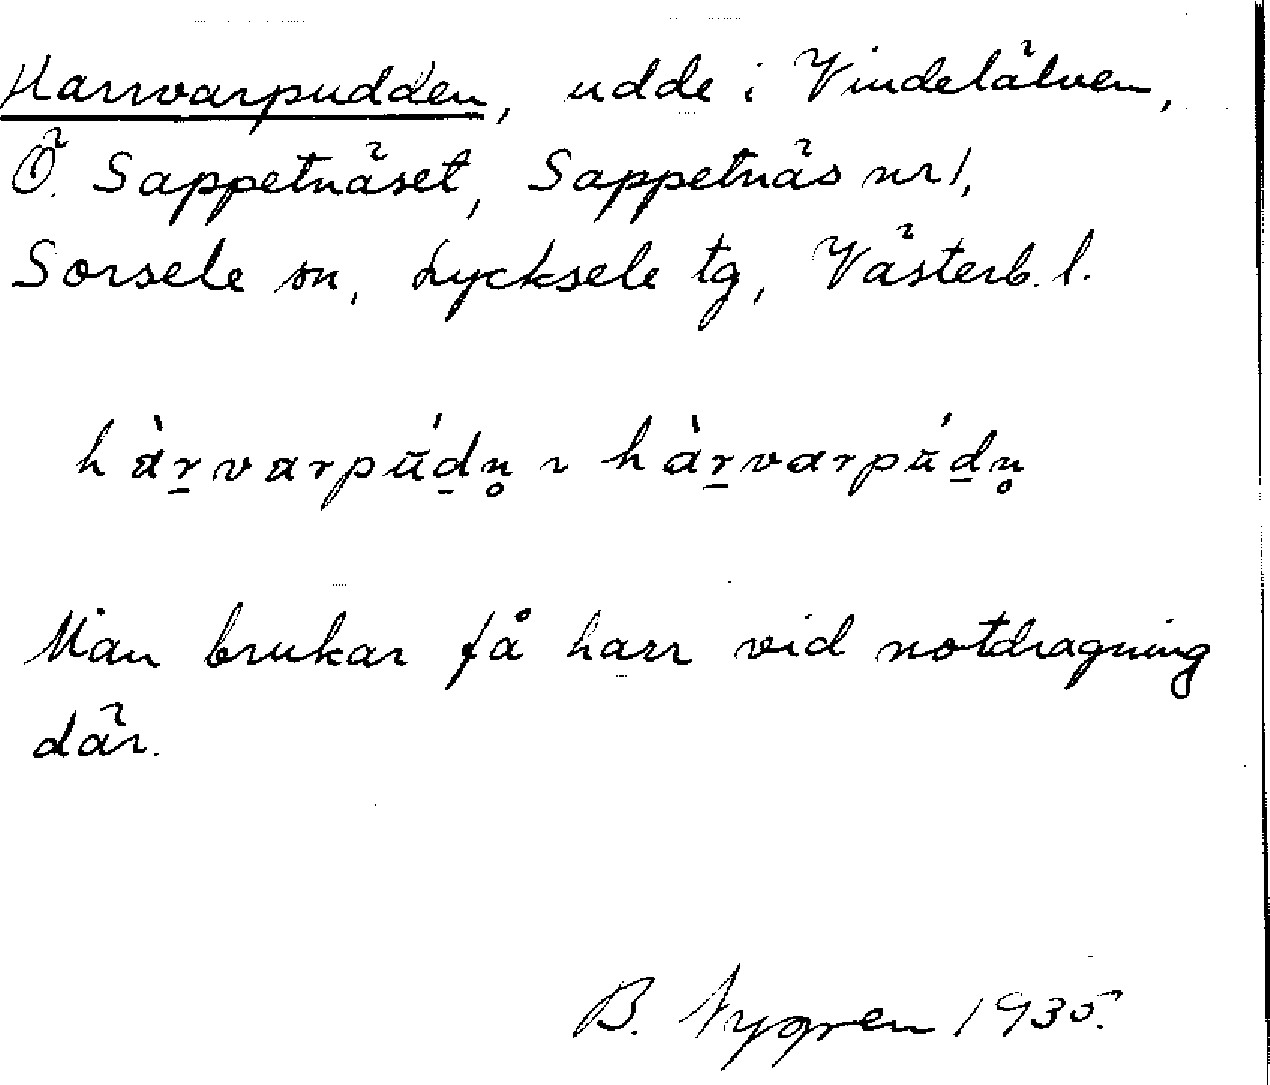 Harrvarpudden, udde i Vindelälven,
Ö. Sappetnäset, Sappetnäs nr 1,
Sorsele sn, Lycksele tg, Västerb. l.
hàr̠varpúd̠n̥ ~ hàr̠varpúd̠n̥
Man brukar få harr vid notdragning
där.
B. Nygren 1935.